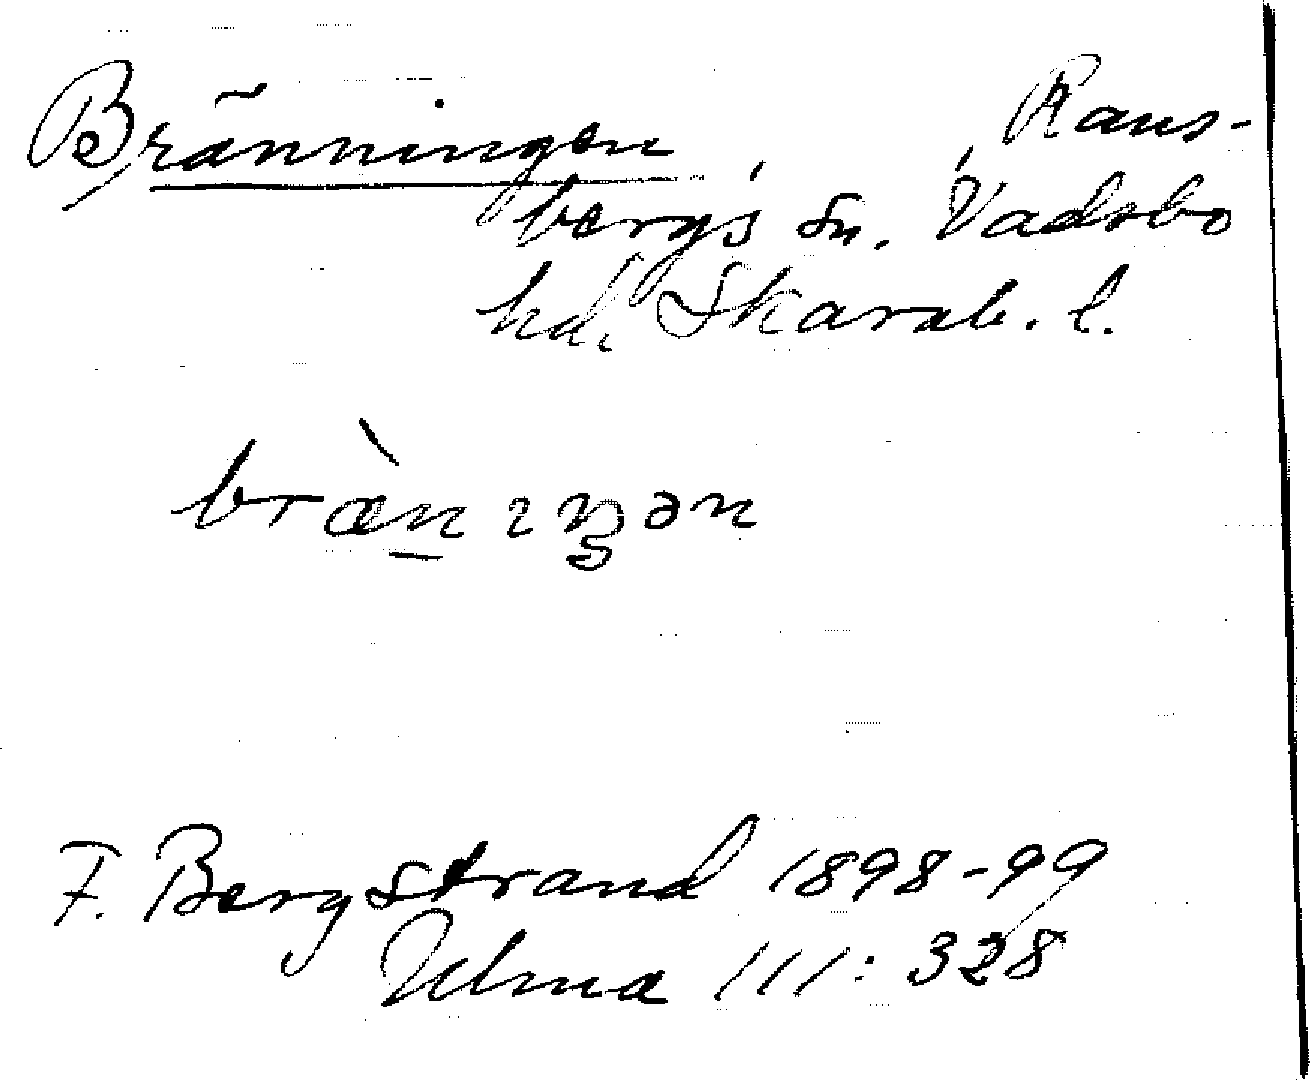 Bränningen, Rans-
bergs sn. Vadsbo
hd, Skarab. l.
bræ̀n̲ıŋən
F. Bergstrand 1898-99
Ulma 111:328